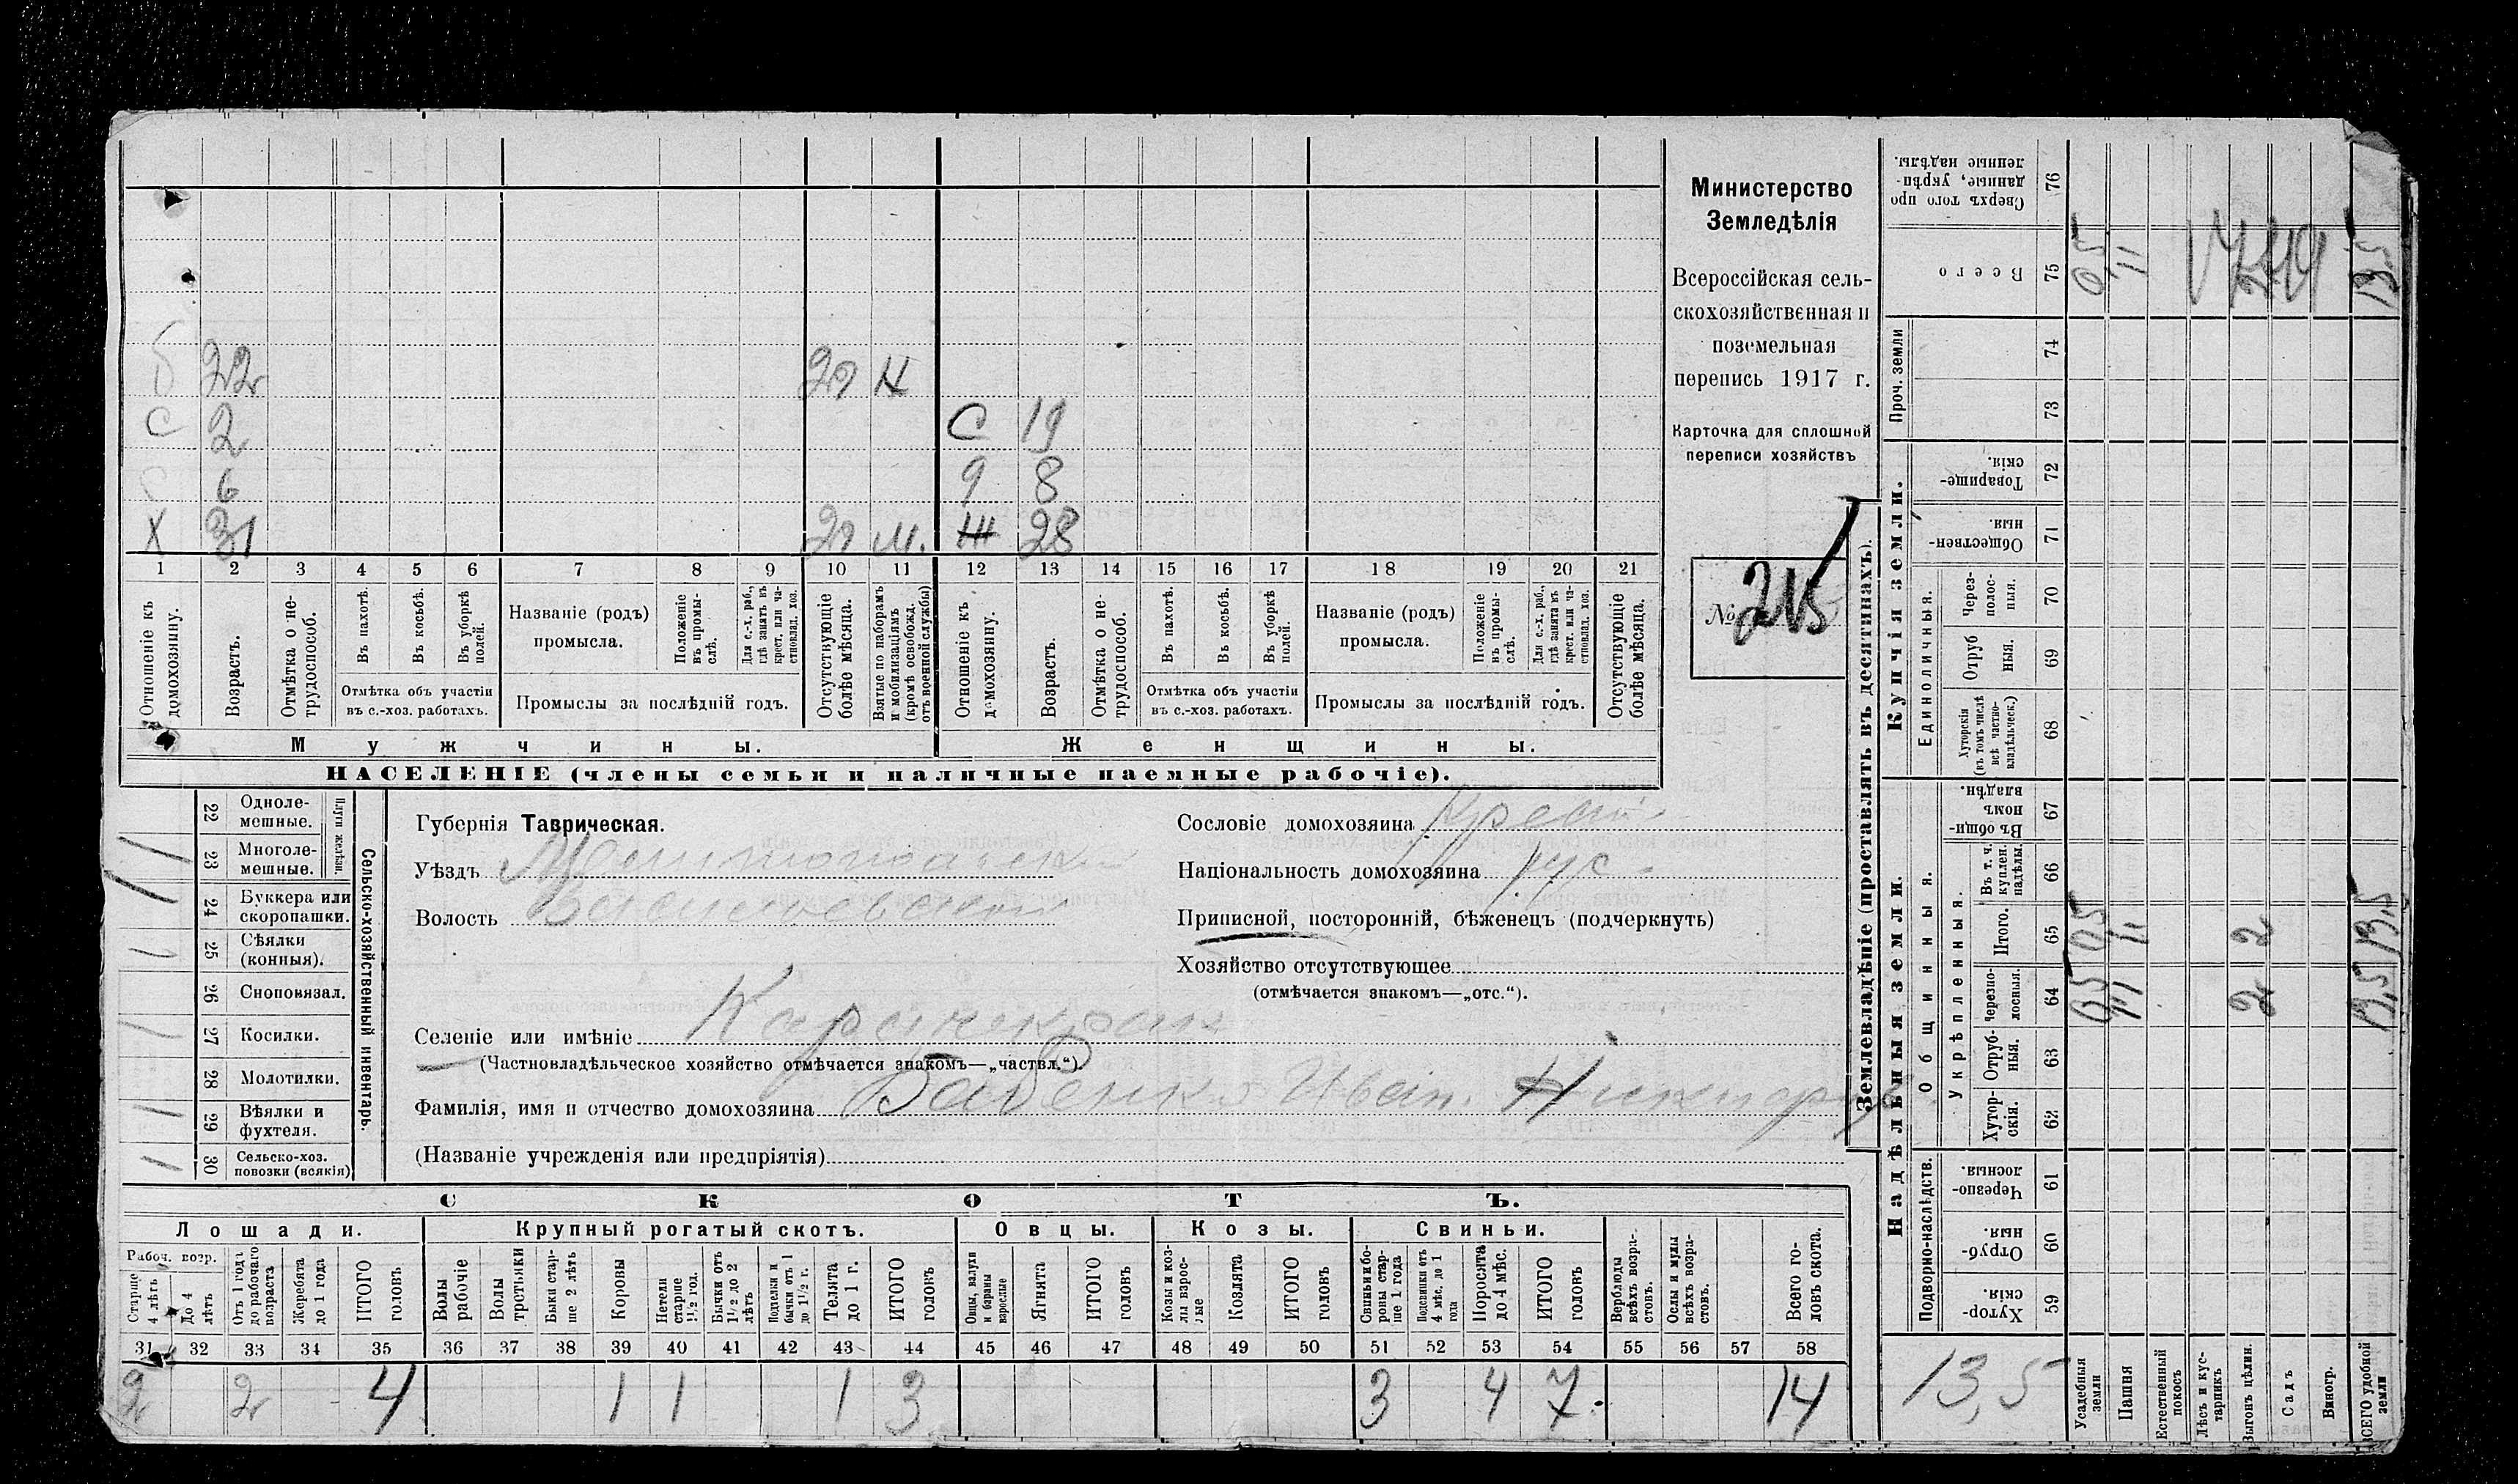 б 22 20 н
С 2 С 19
С 6 9 8
Х 31 20 м. Ж 28
1 2 3 4 5 6 7 8 9 10 11 12 13 14 15 16 17 18 19 20 21
Отношеніе къ домохозяину.
Возрастъ.
Отмѣтка о не-
трудоспособ.
Въ пахотѣ.
Въ косьбѣ.
Въ уборкѣ
полей.
Отмѣтка объ участіи
въ с.-хоз. работахъ.
Названіе (родъ)
промысла.
Положеніе
въ промы-
слѣ.
Для с.-х. раб.,
гдѣ занятъ въ
крест. или ча-
стновлад. хоз.
Промыслы за послѣдній годъ.
Отсутствующіе
болѣе мѣсяца.
Взятые по наборамъ
и мобилизаціямъ
(кромѣ освобожд.
отъ военной службы)
Отношеніе къ
домохозяину.
Возрастъ.
Отмѣтка о не-
трудоспособ.
Въ пахотѣ.
Въ косьбѣ.
Въ уборкѣ
полей.
Отмѣтка объ участіи
въ с.-хоз. работахъ.
Названіе (родъ)
промысла.
Положеніе
въ промы-
слѣ.
Для с.-х. раб.,
гдѣ занятъ въ
крест. или ча-
стновлад. хоз.
Промыслы за послѣдній годъ.
Отсутствующіе
болѣе мѣсяца.
Мужчины.
Женщины.
НАСЕЛЕНІЕ (члены семьи и наличные наемные рабочіе).
Министерство
Земледѣлія
Всероссійская сель-
скохозяйственная и
поземельная
перепись 1917 г.
Карточка для сплошной
переписи хозяйствъ
№ 215
22 Одноле-
мешные.
23 Многоле-
мешные.
Плуги желѣзн.
24 Буккера или
скоропашки.
25 Сѣялки
(конныя).
26 Сноповязал.
27 Косилки.
28 Молотилки.
29 Вѣялки и
фухтеля.
30 Сельско-хоз.
повозки (всякія)
Сельско-хозяйственный инвентарь.
Губернія Таврическая.
Уѣздъ Мелитопольскій
Волость Васильевская
Селеніе или имѣніе Карачекрак
(Частновладѣльческое хозяйство отмѣчается знакомъ—„частвл.“).
Фамилія, имя и отчество домохозяина Бабенко Иван. Никифор
(Названіе учрежденія или предпріятія)
Сословіе домохозяина Крест.
Національность домохозяина рус.
Приписной, посторонній, бѣженецъ (подчеркнуть)
Хозяйство отсутствующее
(отмѣчается знакомъ—„отс.“).
СКОТЪ.
Лошади. Крупный рогатый скотъ. Овцы. Козы. Свиньи.
Рабоч. возр.
Старше
4 лѣтъ
До 4
лѣтъ
Отъ 1 года
до рабочаго
возраста
Жеребята
до 1 года
ИТОГО
головъ
Волы
рабочіе
Волы
третьяки
Быки стар-
ше 2 лѣтъ
Коровы
Нетели
старше
1½ год.
Бычки отъ
1½ до 2
лѣтъ
Подтелки и
бычки отъ 1
до 1½ г.
Телята
до 1 г.
ИТОГО
головъ
Овцы, валухи
и бараны
взрослые
Ягнята
ИТОГО
головъ
Козы и коз-
лы взрос-
лые
Козлята
ИТОГО
головъ
Свиньи и бо-
ровы стар-
ше 1 года
Подсвинки отъ
4 мѣс. до 1
года
Поросята
до 4 мѣс.
ИТОГО
головъ
Верблюды
всѣхъ возра-
стовъ.
Ослы и мулы
всѣхъ возра-
стовъ.
Всего го-
ловъ скота.
31 32 33 34 35 36 37 38 39 40 41 42 43 44 45 46 47 48 49 50 51 52 53 54 55 56 57 58
2 2 4 1 1 1 3 3 4 7. 14
Землевладѣніе (проставлять въ десятинахъ).
Надѣльныя земли.
Купчія земли.
Проч. земли
Подворно-наслѣдств.
Общинныя.
Укрѣпленныя.
Единоличныя.
Хутор-
скія. 59
Отруб-
ныя. 60
Черезпо-
лосныя 61
Хутор-
скія. 62
Отруб-
ныя. 63
Черезпо-
лосныя. 64
Итого. 65
Въ т. ч.
куплен.
надѣлы. 66
Въ общин-
номъ
владѣн. 67
Хуторскія
(въ томъ числѣ
всѣ частно-
владѣльческ.) 68
Отруб
ныя. 69
Через-
полос-
ныя. 70
Обществен-
ныя. 71
Товарище-
скія. 72
73
74
Всего 75
Сверхъ того про
данные, укрѣп-
ленные надѣлы. 76
13,5
Усадебныя
земли 0,5 0,5 0,5
Пашня 11 11 11
Естественный
покосъ
Лѣсъ и кус-
тарникъ
Выгонъ цѣлин. 2 2
Садъ
Виногр.
ВСЕГО удобной
земли 13,5 13,5 13,5